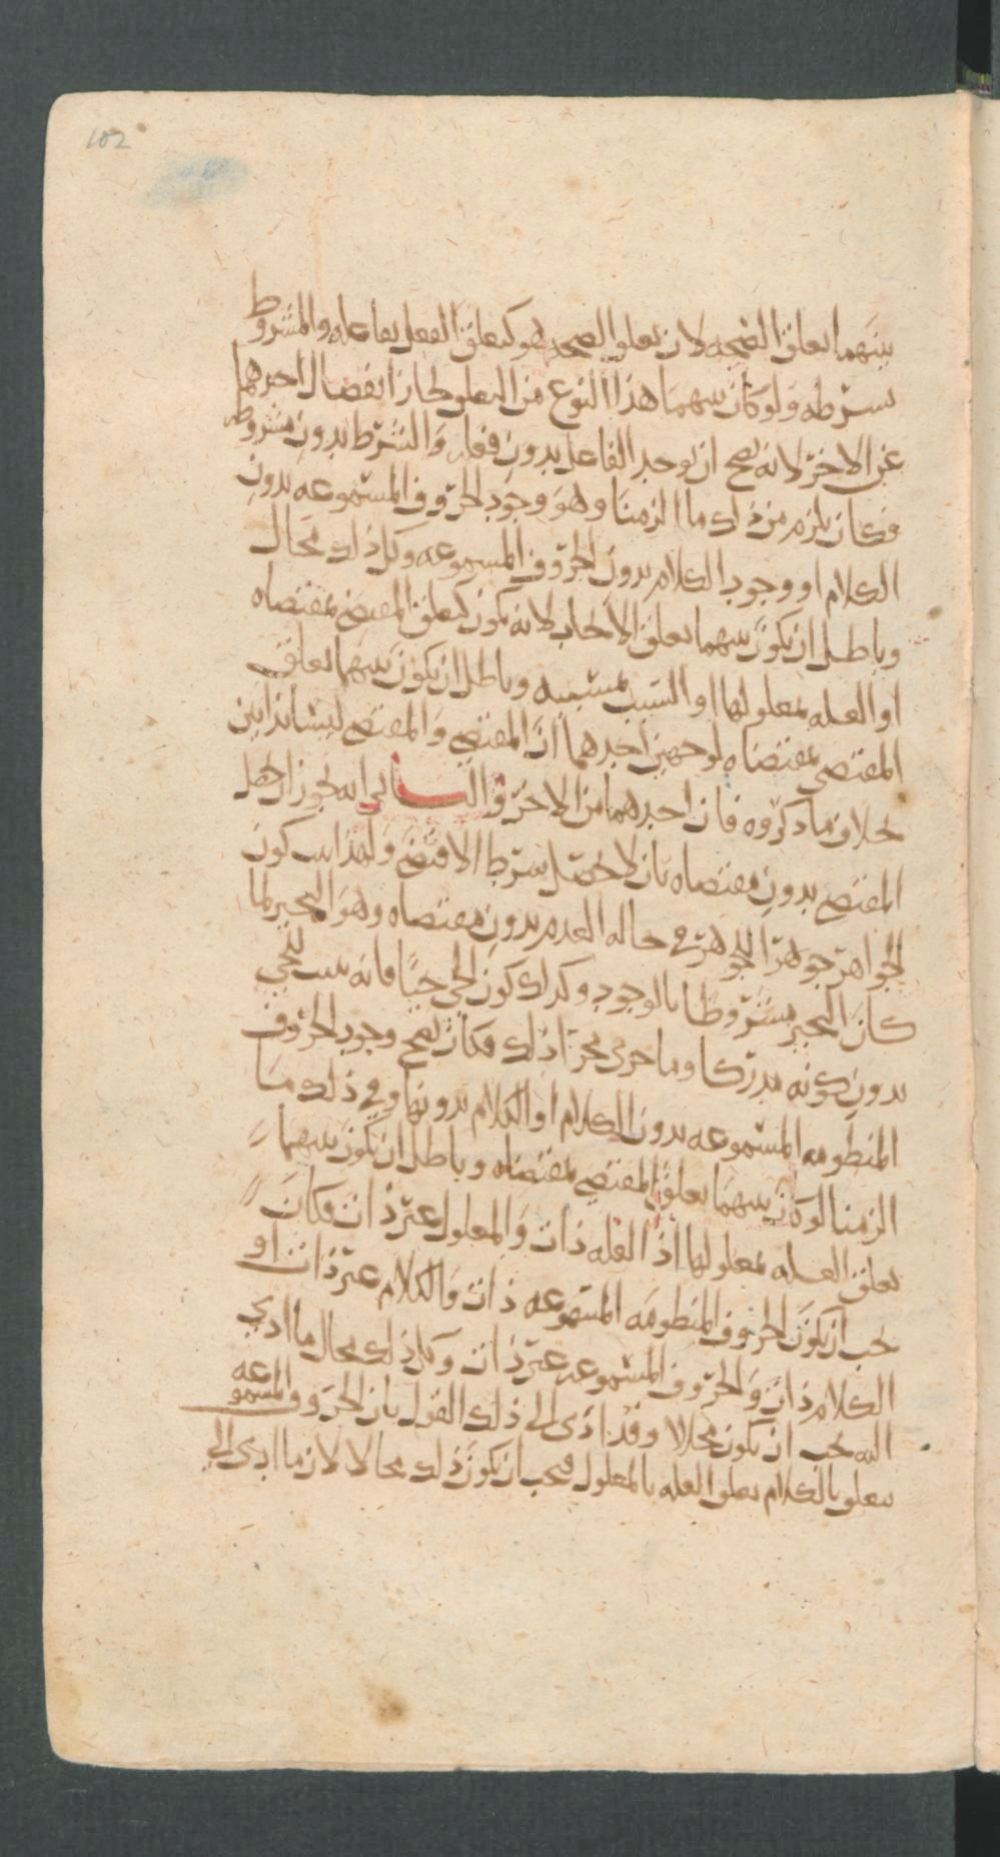 102
بينهما تعلق الصحه لان تعلق الصحه هو كتعلق الفعل بفاعله والمشروط
بشرطه ولو كان بينهما هذا النوع من التعلق لجاز انفصال احدهما
عن الاخر لانه يصح ان يوجد الفاعل بدون فعله والشرط بدون مشروطه
فكان يلزم من ذلك ما الزمنا وهو وجود الحروف المسموعه بدون
الكلام او وجود الكلام بدون الحروف المسموعه وكل ذلك محال
وباطل ان يكون بينهما تعلق الايجاب لانه يكون كتعلق المقتضي بمقتضاه
او العله بمعلولها او السبب بمسببه وباطل ان يكون بينهما تعلق
المقتضي بمقتضاه لوجهين احدهما ان المقتضي والمقتضى ليسا بذاتين
بخلاف ما ذكروه فان احدهما من الاخر والثاني انه يجوز ان يحصل
المقتضي بدون مقتضاه بان لا يحصل شرط الاقتضى ولهذا يثبت كون
الجواهر جوهرا للجوهر في حاله العدم بدون مقتضاه وهو التحيز لما
كان التحيز مشروطا بالوجود وكذلك كون الحي حيا فانه يثبت للحي
بدون كونه مدركا وما جرى مجرا ذلك فكان يصح وجود الحروف
المنظومه المسموعه بدون الكلام او الكلام بدونها وفي ذلك ما
الزمنا لو كان بينهما تعلق المقتضي بمقتضاه وباطل ان يكون بينهما
تعلق العله بمعلولها اذ العله ذات والمعلول غير ذات فكان
يجب ان يكون الحروف المنظومه المسموعه ذات والكلام غير ذات او
الكلام ذات والحروف المسموعه غير ذات وكل ذلك محال ما ادى
اليه يجب ان يكون محالا وقد ادى الى ذلك القول بان الحروف المسموعه
تتعلق بالكلام تعلق العله بالمعلول فيجب ان يكون ذلك محالا لان ما ادى الى